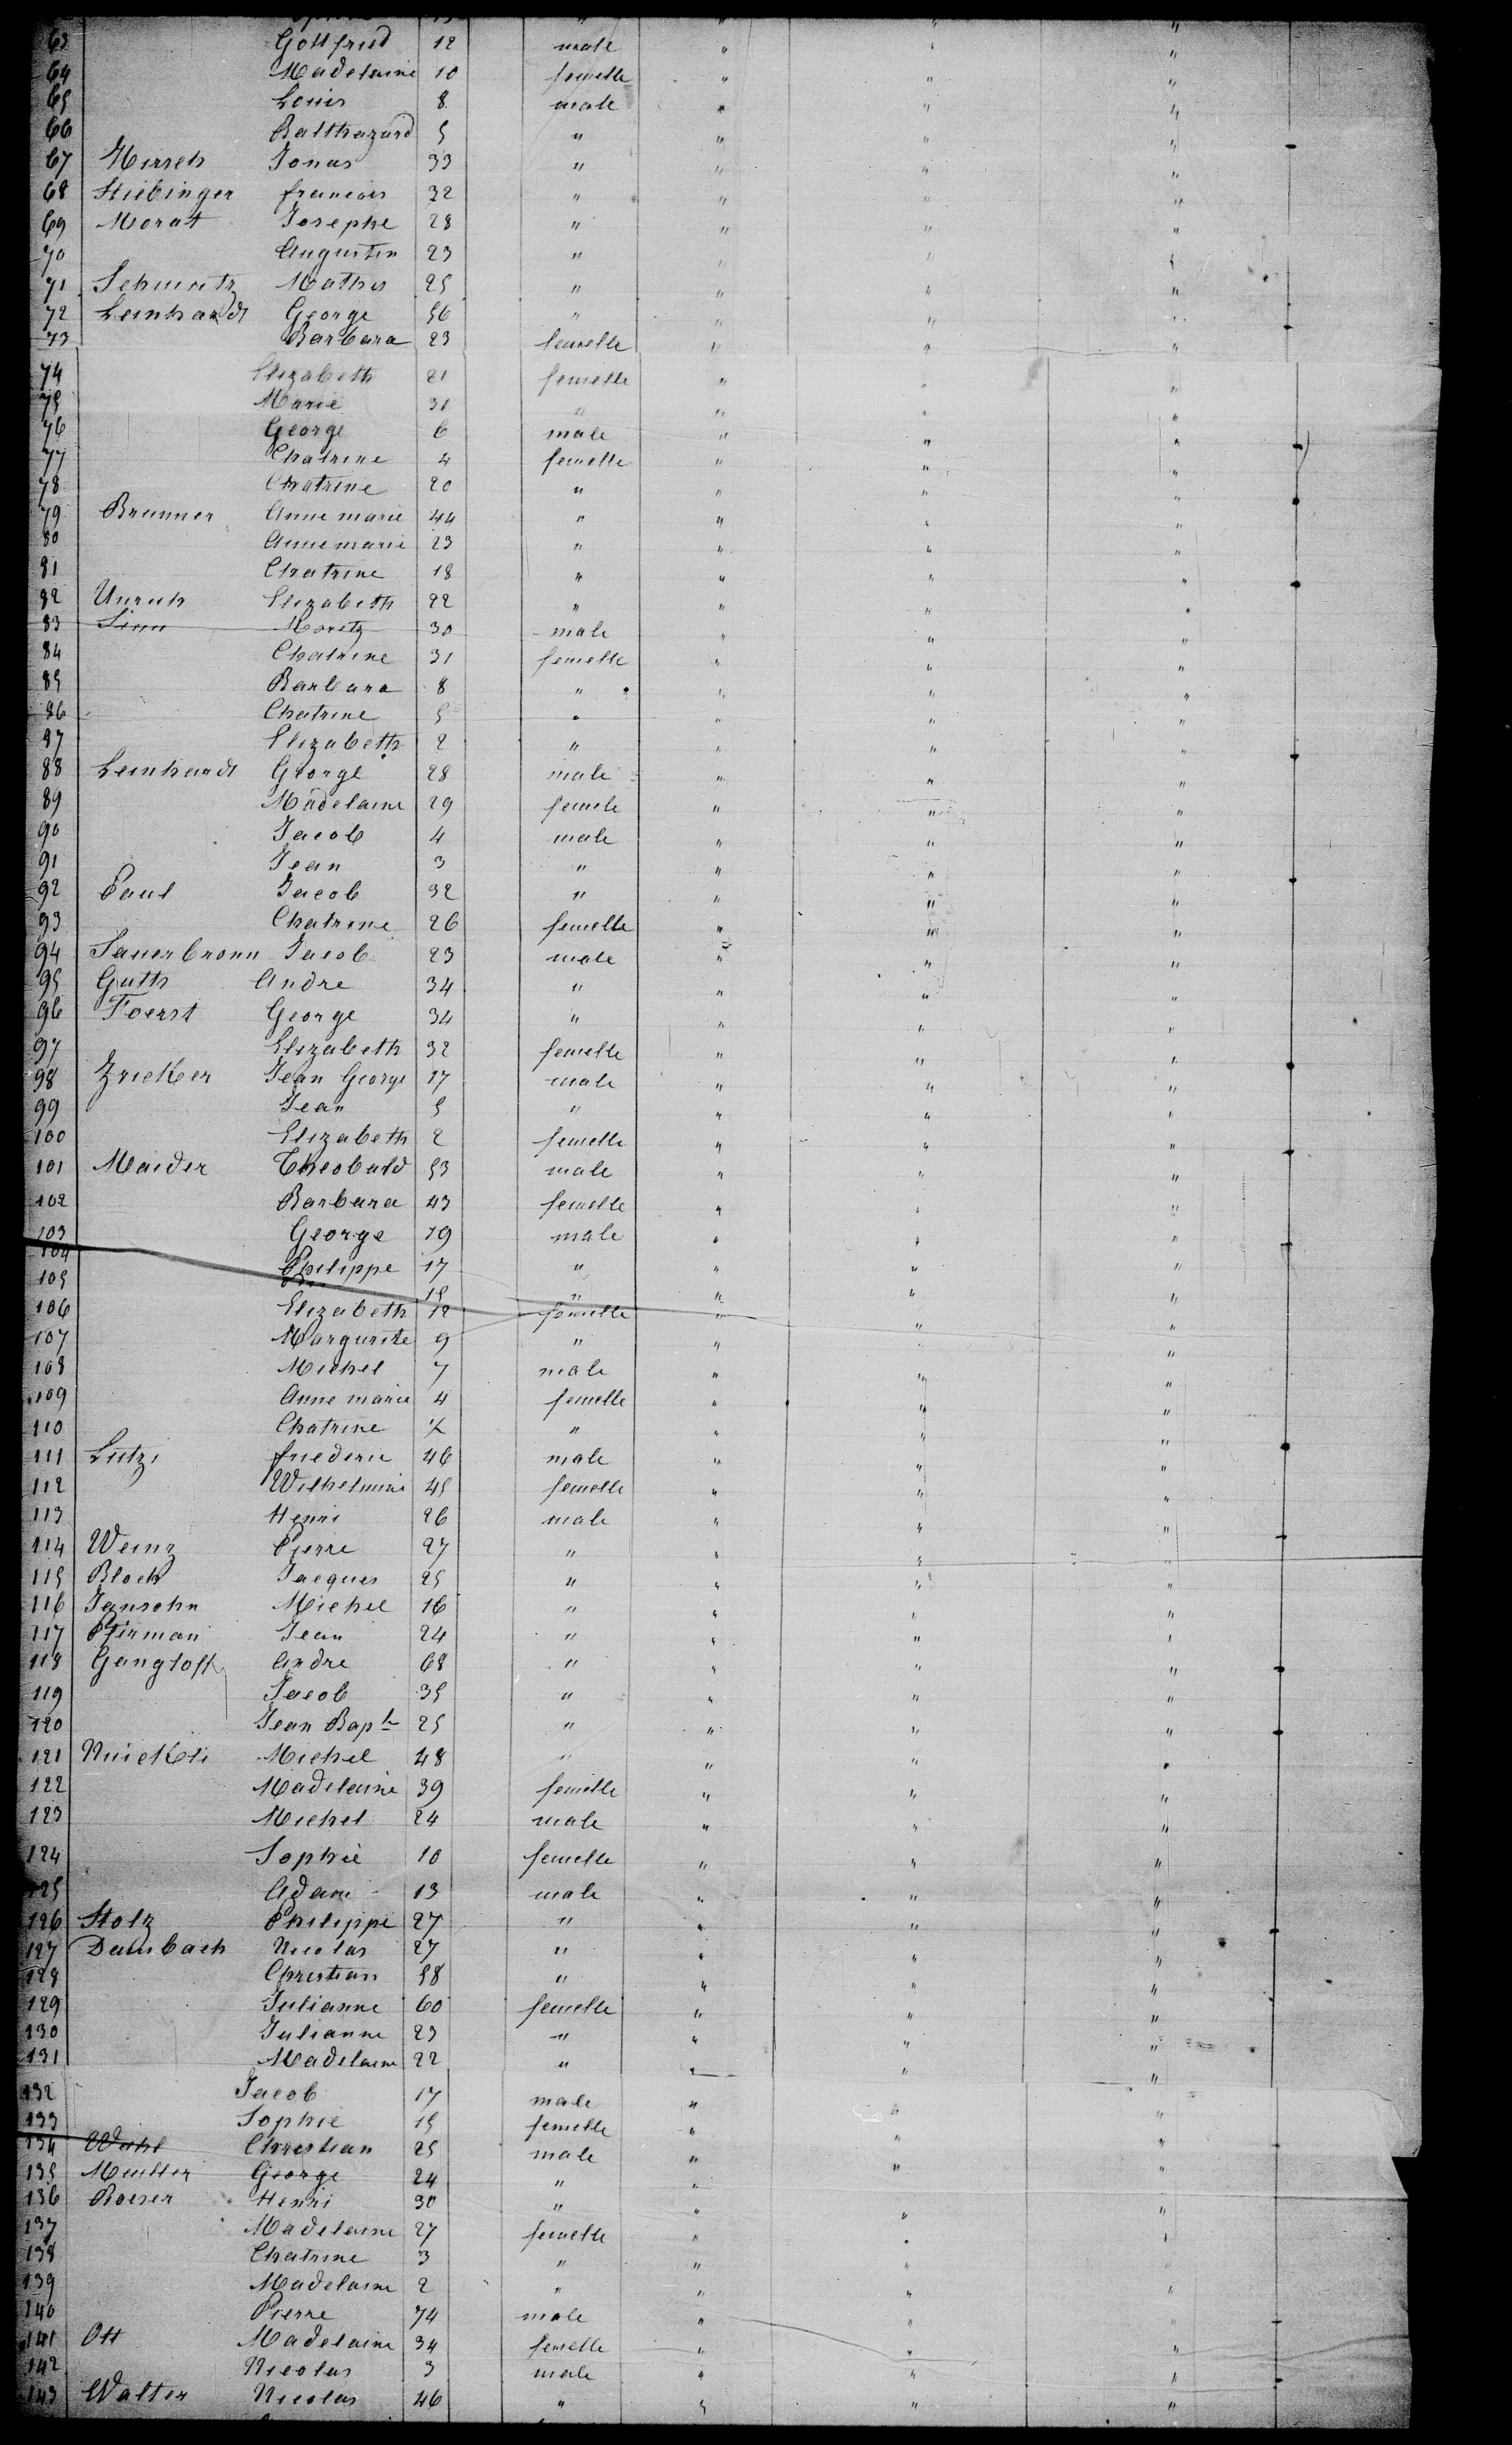 63 Gottfried 12 male " " "
64 Madelaine 10 femelle " " "
65 Louis 8 male " " "
66 Balthazard 5 " " " "
67 Hirsch Jonas 33 " " " "
68 Stiebinger francois 32 " " " "
69 Morat Josephe 28 " " " "
70 Augustin 23 " " " "
71 Schmatz Mathis 25 " " " "
72 Leinhardt George 56 " " " "
73 Barbara 23 femelle " " "
74 Elizabeth 21 femelle " " "
75 Marie 31 " " " "
76 George 6 male " " "
77 Chatrine 4 femelle " " "
78 Chatrine 20 " " " "
79 Brunner Anne marie 44 " " " "
80 Anne marie 23 " " " "
81 Chatrine 18 " " " "
82 Unruh Elizabeth 22 " " " "
83 Sinn Moritz 30 male " " "
84 Chatrine 31 femelle " " "
85 Barbara 8 " " " "
86 Chatrine 5 " " " "
87 Elizabeth 2 " " " "
88 Leinhardt George 28 male " " "
89 Madelaine 29 femele " " "
90 Jacob 4 male " " "
91 Jean 3 " " " "
92 Paul Jacob 32 " " " "
93 Chatrine 26 femelle " " "
94 Sauerbronn Jacob 23 male " " "
95 Guth Andre 34 " " " "
96 Foerst George 34 " " " "
97 Elizabeth 32 femelle " " "
98 Zricker Jean George 17 male " " "
99 Jean 5 " " " "
100 Elizabeth 2 femelle " " "
101 Maider Theobald 53 male " " "
102 Barbara 43 femelle " " "
103 George 19 male " " "
104 Philippe 17 " " " "
105 15 " " " "
106 Elizabeth 12 femelle " " "
107 Margurite 9 " " " "
108 Michel 7 male " " "
109 Anne marie 4 femelle " " "
110 Chatrine " " " "
111 Lutzi friederic 46 male " " "
112 Wilhelmine 45 femelle " " "
113 Henri 26 male " " "
114 Weinz Pierre 27 " " " "
115 Bloch Jacques 25 " " " "
116 Jansohn Michel 16 " " " "
117 Pfirman Jean 24 " " " "
118 Gangloff Andre 68 " " " "
119 Jacob 35 " " " "
120 Jean Bapte 25 " " " "
121 Michel 48 " " " "
122 Madelaine 39 femelle " " "
123 Michel 24 male " " "
124 Sophie 10 femelle " " "
125 Adam 13 male " " "
126 Stolz Philippe 27 " " " "
127 Dambach Nicolas 27 " " " "
128 Christian 58 " " " "
129 Julianne 60 femelle " " "
130 Julianne 23 " " " "
131 Madelaine 22 " " " "
132 Jacob 17 male " " "
133 Sophie 15 femelle " " "
134 Wahl Christian 25 male " " "
135 Muller George 24 " " " "
136 Boeser Henri 30 " " " "
137 Madelaine 27 femelle " " "
138 Chatrine 3 " " " "
139 Madelaine 2 " " " "
140 Pierre 74 male " " "
141 Ott Madelaine 34 femelle " " "
142 Nicolas 3 male " " "
143 Walter Nicolas 46 " " " "